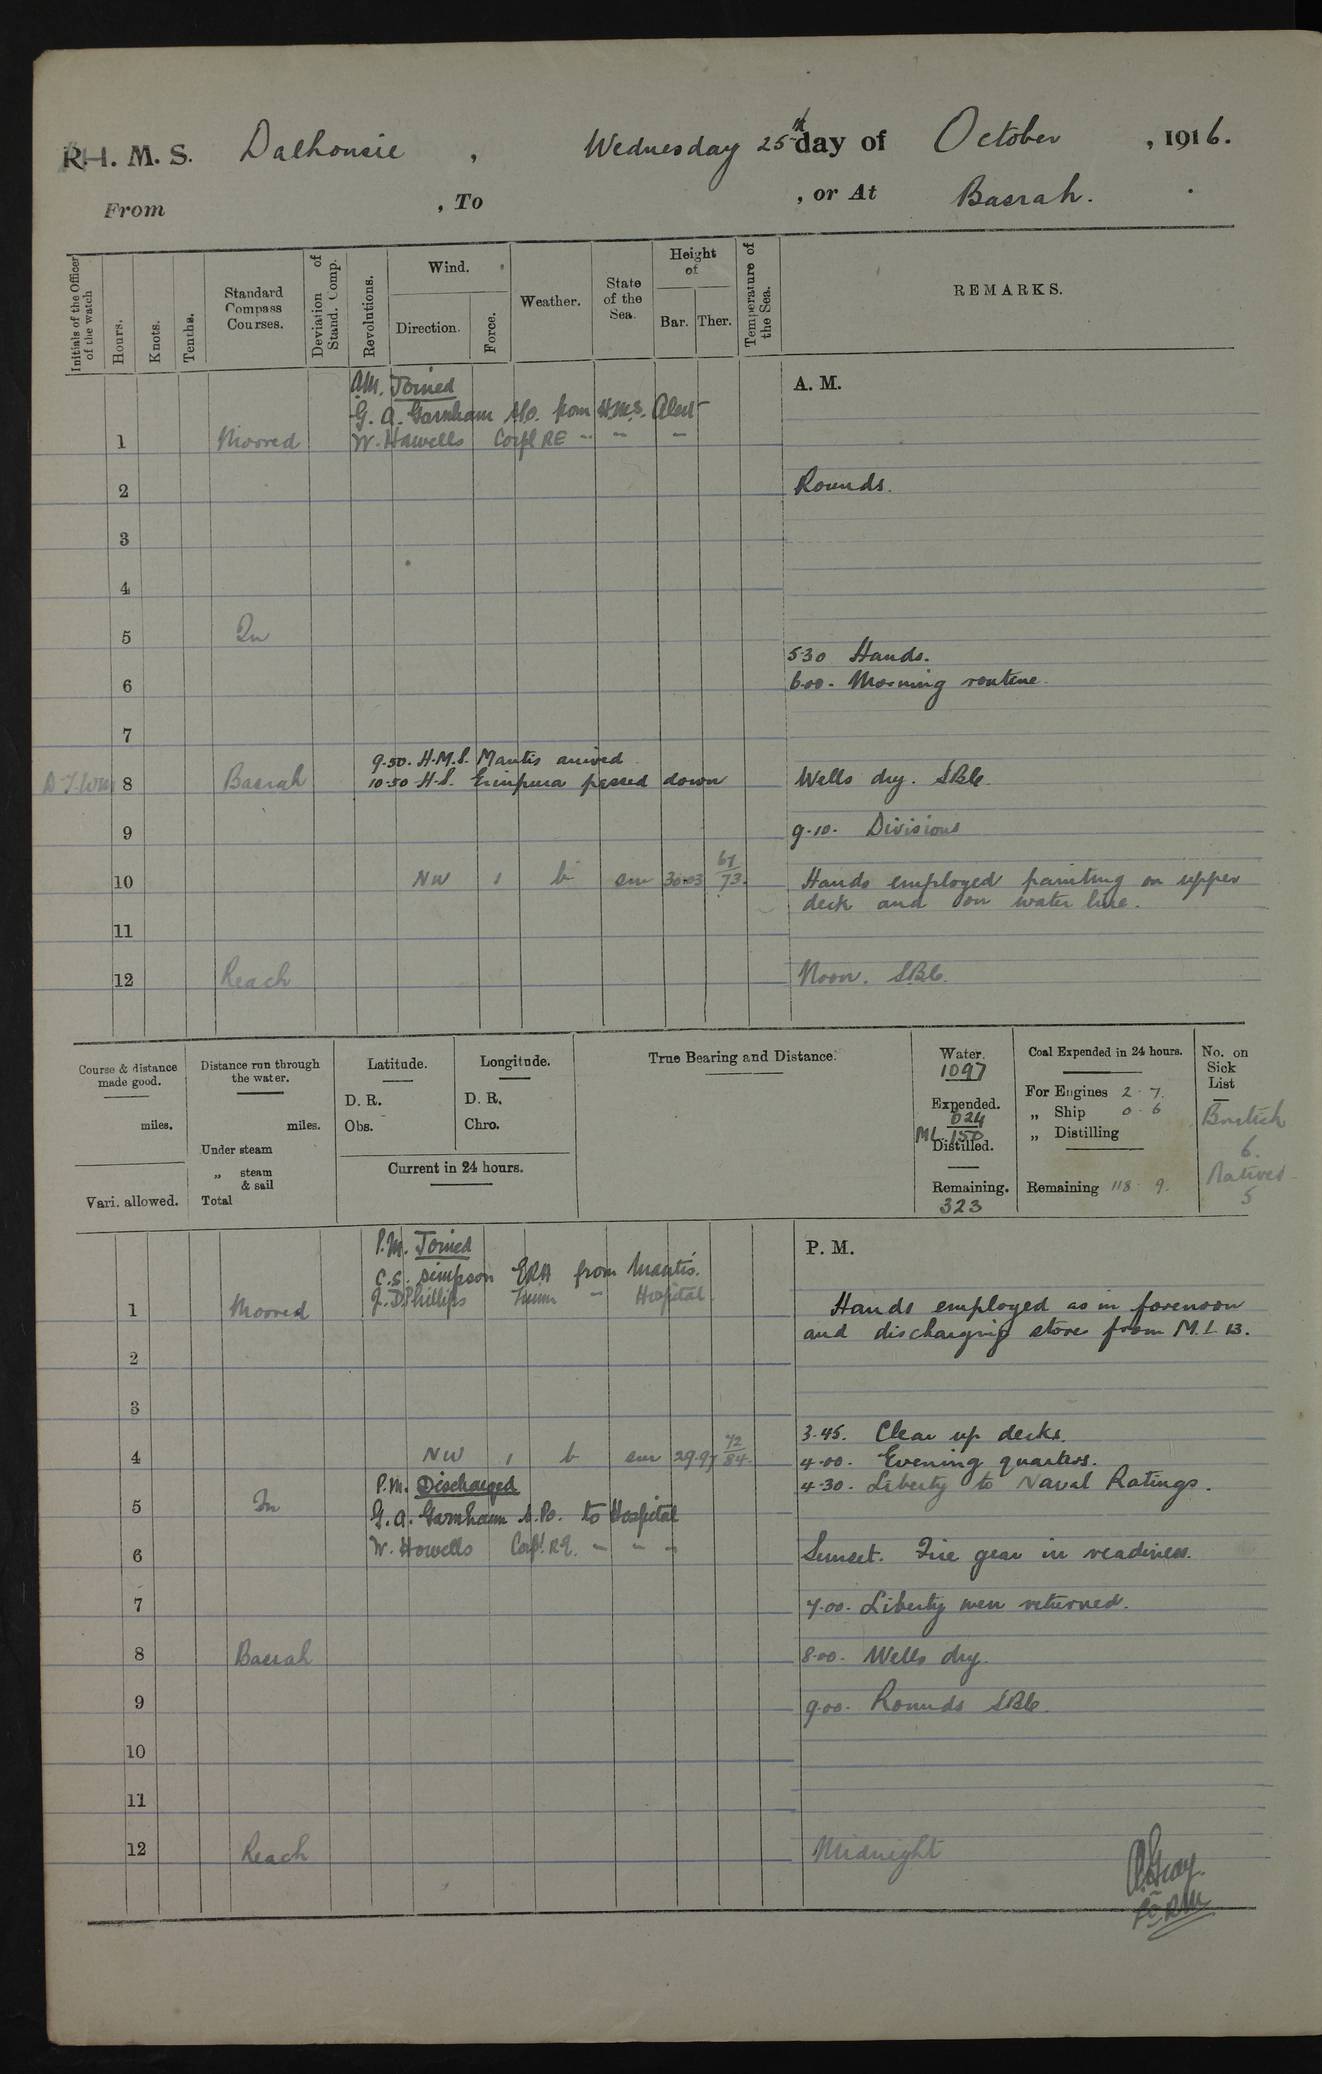 R.I.M.S. Dalhousie, Wednesday 25th day of October, 1916.
From , To , or At Basrah.
Initials of the Officer of the watch
Hours.
Knots.
Tenths.
Standard Compass Courses.
Deviation of Stand. Comp.
Revolutions.
Wind.
Direction.
Force.
Weather.
State of the Sea.
Height of
Bar. Ther.
Temperature of the Sea.
REMARKS.
A. M.
AM. Joined
G. A. Garnham A.P.O. from H.M.S. Alert
1 Moored W. Howells Corpl RE " " "
2 Rounds.
3
4
5 In
5.30 Hands.
6 6.00. Morning routine.
7
9.50. H.M.S. Mantis arrived
8 Basrah 10.50 H.S. Erinpura passed down Wells dry. SBC.
9 9.10. Divisions
10 NW 1 b sm 30.03 67/73. Hands employed painting on upper
deck and on water line.
11
12 Reach Noon. SBC.
Course & distance made good.
miles.
Vari. allowed.
Distance run through the water.
miles.
Under steam
„ steam & sail
Total
Latitude.
D. R.
Obs.
Longitude.
D. R.
Chro.
Current in 24 hours.
True Bearing and Distance.
Water.
1097
Expended.
024
ML 150
Distilled.
Remaining.
323
Coal Expended in 24 hours.
For Engines 2 . 7.
„ Ship 0 . 6
„ Distilling
Remaining 118 . 9.
No. on Sick List
British
6.
Natives
5
P. M.
P.M. Joined
C. S. Simpson ERA from Mantis.
J. D. Phillips " Hospital.
1 Moored Hands employed as in forenoon
and discharging stores from M.L 13.
2
3
3.45. Clear up decks.
4 NW 1 b sm 29.97 72/84. 4.00. Evening quarters.
P.M. Discharged 4.30. Liberty to Naval Ratings.
5 In G. A. Garnham A.P.O. to Hospital
6 W. Howells Corpl. R.E. " " " Sunset. Fire gear in readiness.
7 7.00. Liberty men returned.
8 Basrah 8.00. Wells dry.
9 9.00. Rounds SBC.
10
11
12 Reach Midnight